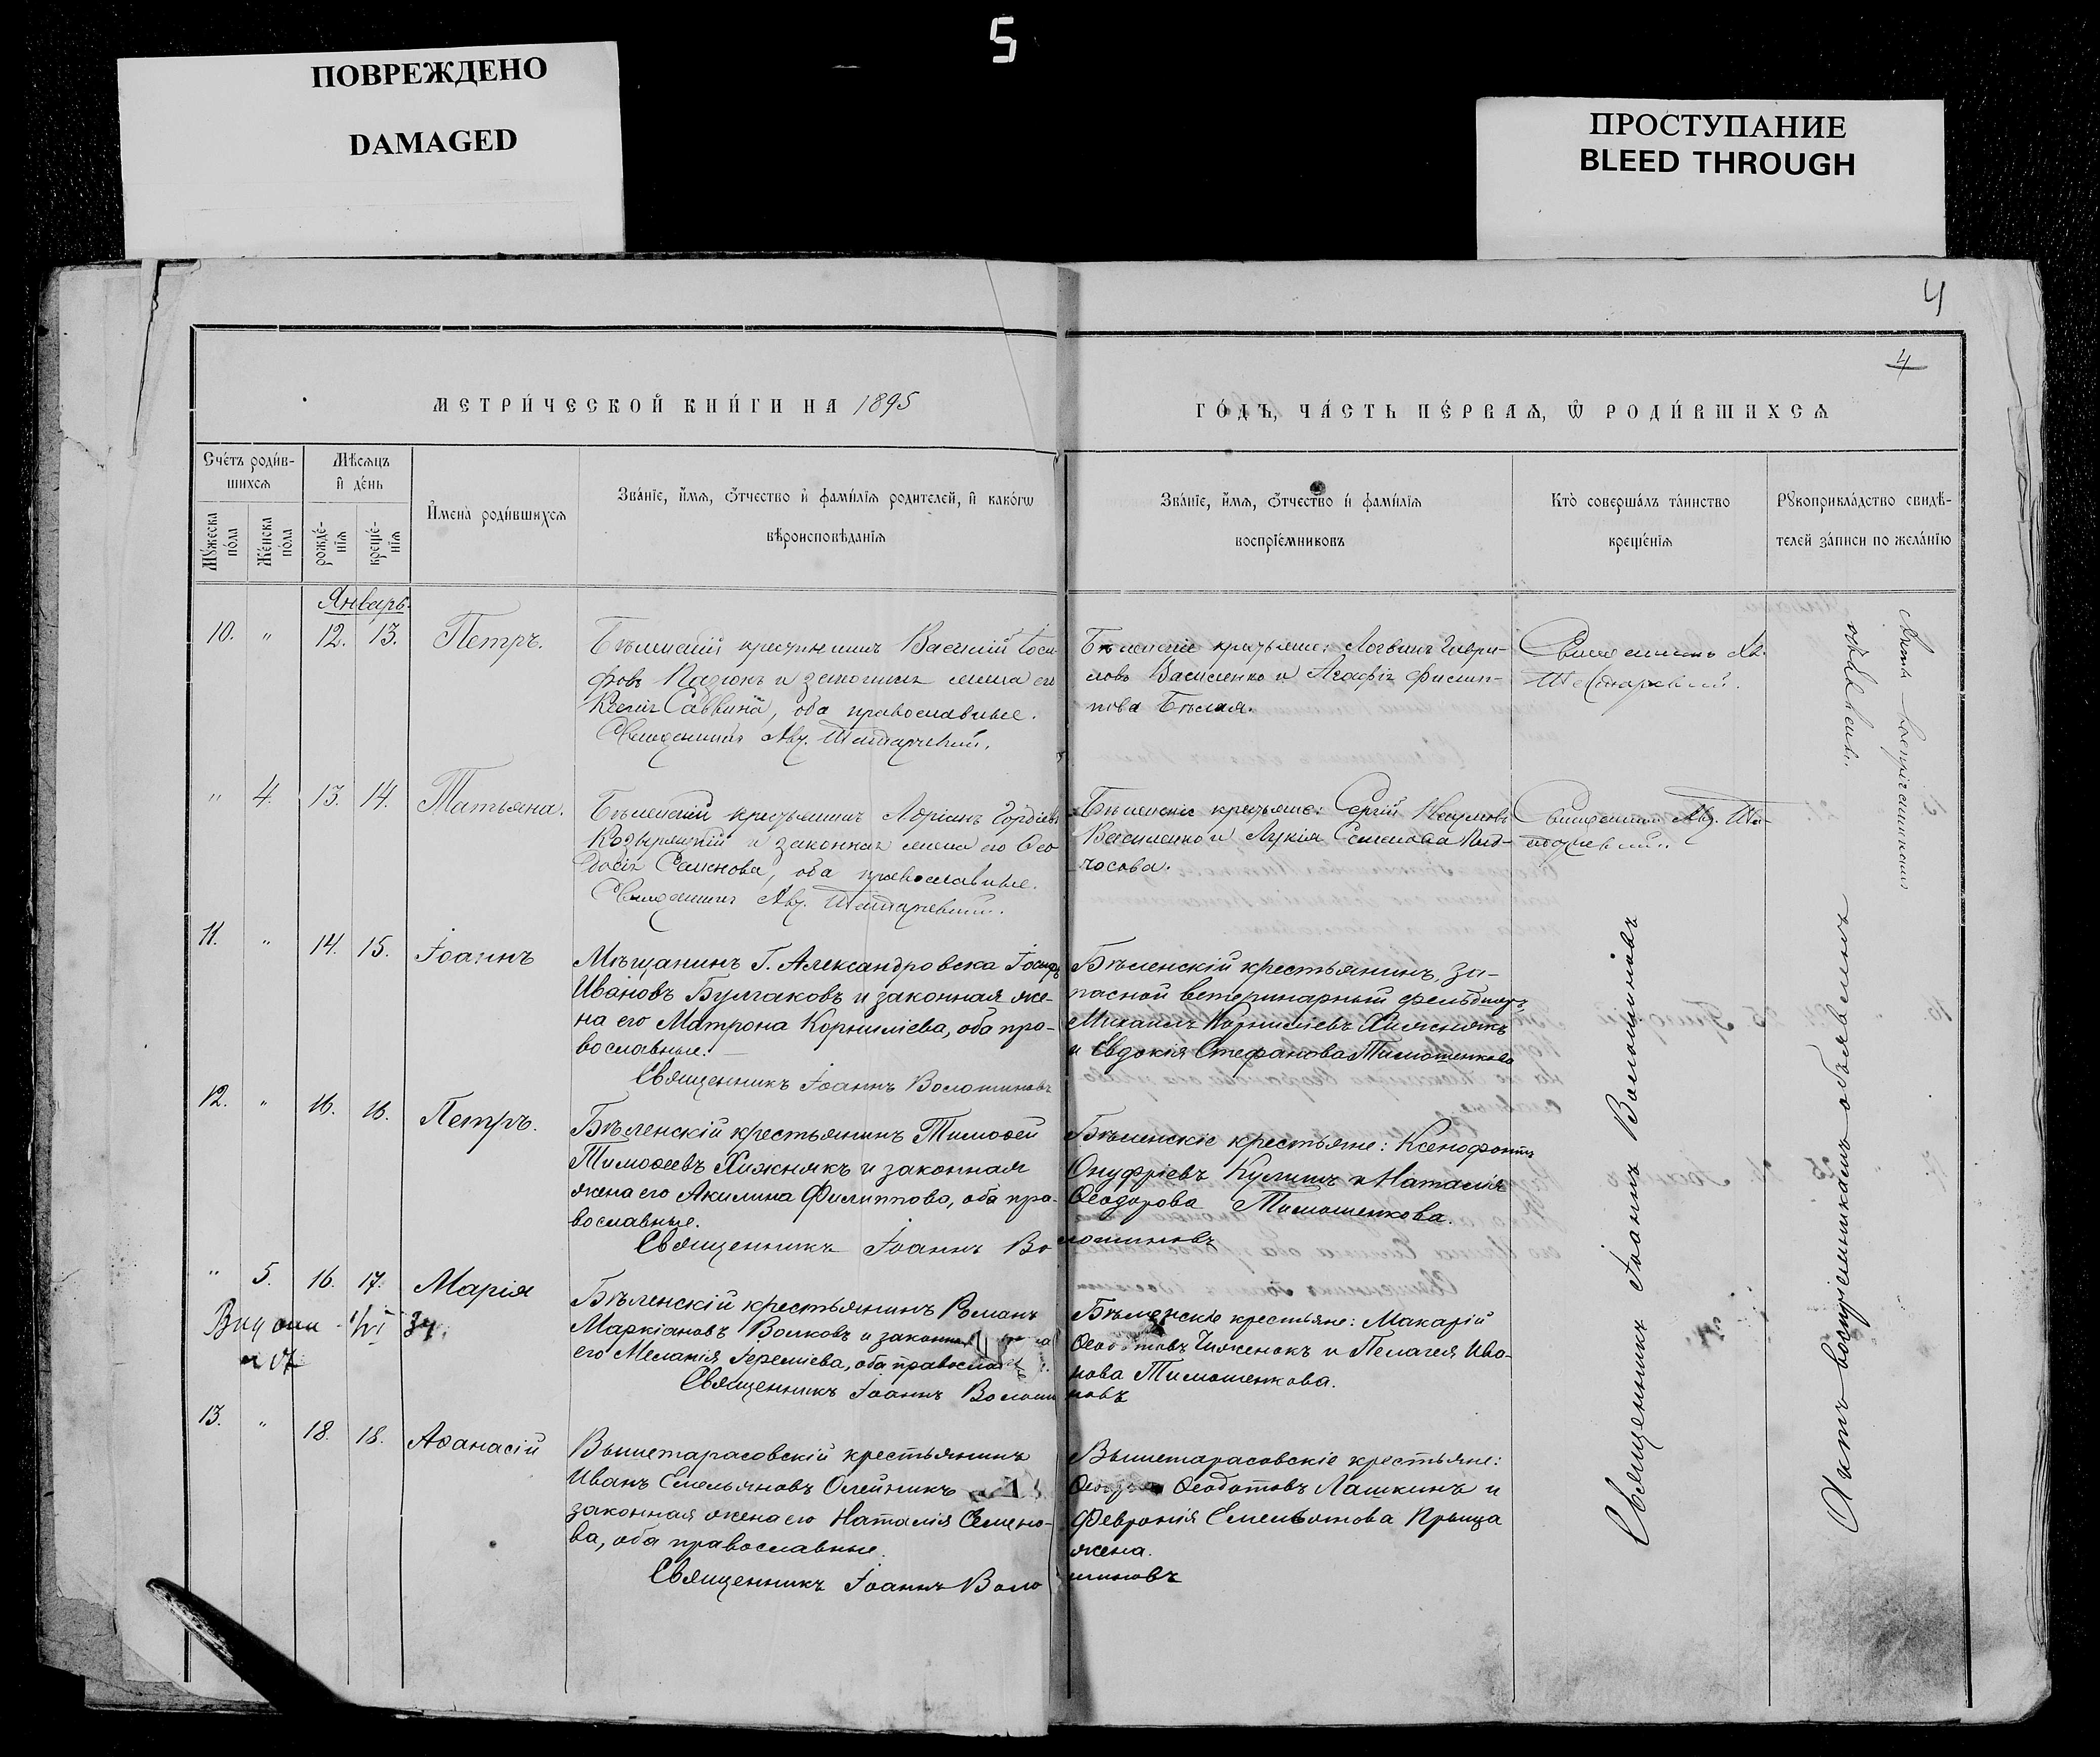 5
ПОВРЕЖДЕНО
DAMAGED
ПРОСТУПАНИЕ
BLEED THROUGH
4
4
МЕТРИ́ЧЕСКОЙ КНИ́ГИ НА 1895
ГО́ДЪ, ЧА́СТЬ ПЕ́РВАѦ, Ѡ РОДИ́ВШИХСѦ
Сче́тъ роди́в-
шихсѧ
Мѣсѧцъ
и де́нь
Мꙋжеска по́ла
Же́нска по́ла
рожде́-
нїѧ
креще́-
нїѧ
Имена̀ роди́вшихсѧ
Зва́нїе, и́мѧ, ѻтчество и фами́лїѧ родителей, и како́гѡ
вѣроисповѣданїѧ
Зва́нїе, и́мѧ, ѻтчество и фами́лїѧ
воспрїе́мниковъ
Кто̀ соверша́лъ та́инство
креще́нїѧ
Рꙋкоприкла́дство свидѣ-
телей за́писи по жела́нїю
Январь.
10. " 12. 13. Петръ.
Бѣленскій крестьянинъ Василій Іоси-
фовъ и законная жена его
Ксенія Саввина, оба православные.
Священникъ
Бѣленскіе крестьяне: Логвинъ Гаври-
ловъ Василенко и Агафія Филип-
пова Бѣлая.
Священникъ
" 4. 13. 14. Татьяна.
Бѣленскій крестьянинъ Адріанъ Гордіевъ
и законная жена его Ѳео-
досія Семенова, оба православные.
Священникъ
Бѣленскіе крестьяне: Сергій Наумовъ
Василенко и Лукія Семенова
Священникъ
11. " 14. 15. Іоаннъ
Мѣщанинъ Г. Александровска Іосифъ
Ивановъ Булгаковъ и законная же-
на его Матрона Корниліева, оба пра-
вославные.
Священникъ Іоаннъ Волошиновъ
Бѣленскій крестьянинъ, за-
пасной ветеринарный фельдшеръ
Михаилъ Корниліевъ Хижнякъ
и Евдокія Стефанова Тимошенкова
12. " 16. 16. Петръ.
Бѣленскій крестьянинъ Тимоѳей
Тимоѳеевъ Хижнякъ и законная
жена его Акилина Филиппова, оба пра-
вославные.
Священникъ Іоаннъ Волошиновъ
Бѣленскіе крестьяне: Ксенофонтъ
Онуфріевъ Кулишъ и Наталія
Ѳеодорова Тимошенкова.
" 5. 16. 17. Марія
Бѣленскій крестьянинъ Романъ
Маркіановъ Волковъ и законная
его Меланія Іереміева, оба православ
Священникъ Іоаннъ Волошиновъ
Бѣленскіе крестьяне: Макарій
Ѳеодотовъ Чиженокъ и Пелагея Ива-
нова Тимошенкова.
13. " 18. 18. Аѳанасій
Вышетарасовскій крестьянинъ
Иванъ Емельяновъ Олейникъ
законная жена его Наталія Семено-
ва, оба православные.
Священникъ Іоаннъ Волошиновъ
Вышетарасовскіе крестьяне:
Ѳеодотовъ Лашкинъ и
Февронія Емельянова
жена.
Священникъ Іоаннъ Волошиновъ
Актъ воспріемникамъ объявленъ
Актъ воспріемникамъ
объявленъ.